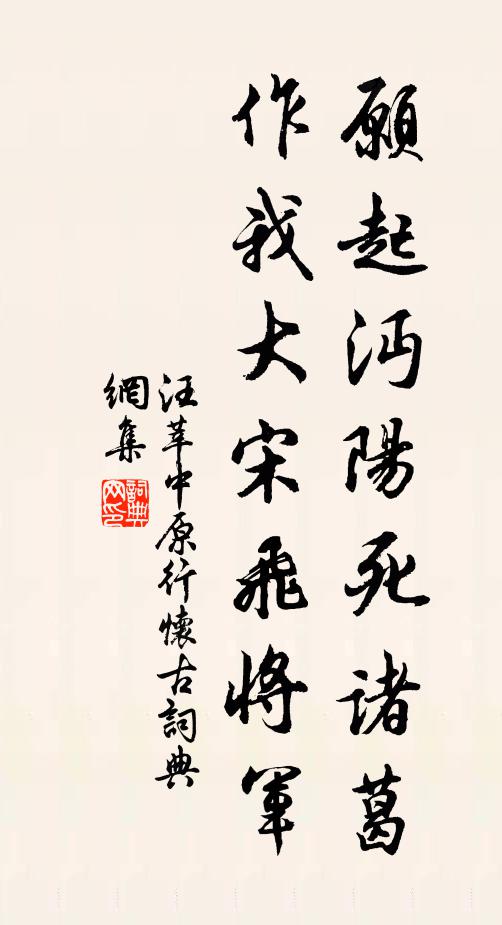 願起沔陽死諸葛
作我大宋飛將軍
汪莘中原行懷古詞典
網集
詞典網印